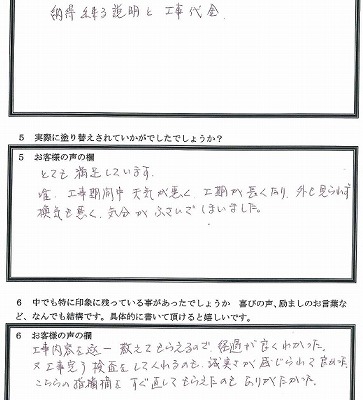 納得出来る説明と工事代金
5 実際に塗り替えされていかがでしたでしょうか？
5 お客様の声の欄
とても満足しています。
唯、工事期間中天気が悪く工期が長くなり、外も見られず
換気も悪く、気分がふさいでしまいました。
6 中でも特に印象に残っている事があったでしょうか 喜びの声、励ましのお言葉な
ど、なんでも結構です。具体的に書いて頂けると嬉しいです。
6 お客様の声の欄
工事内容を逐一教えてもらえるので、経過が良くわかった。
又工事完了検査をしてくれるのも、誠実さが感じられて良かった。
こちらの指摘箇所をすぐ直してもらえたのもありがたかった。